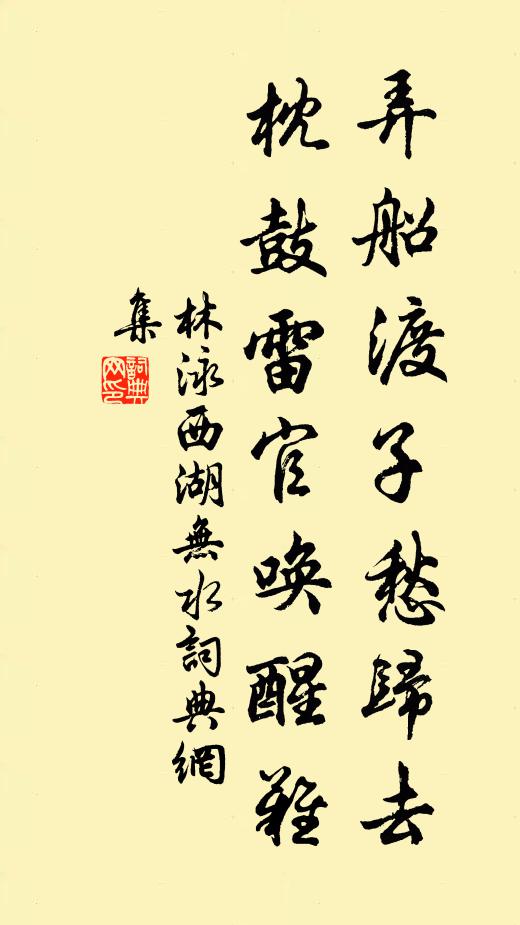 弄船渡子愁歸去
枕鼓雷官喚醒難
林泳西湖無水詞典網
集
詞典
网印